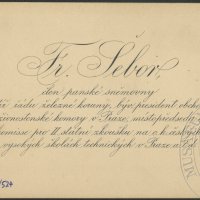 Fr. Šebor,
člen panské sněmovny
řádu železné koruny, býv. president obch.
živnostenské komory v Praze, místopředseda
komisse pro II. státní zkoušku na c. k. českých
vysokých školách technických v Praze a t. d.
524